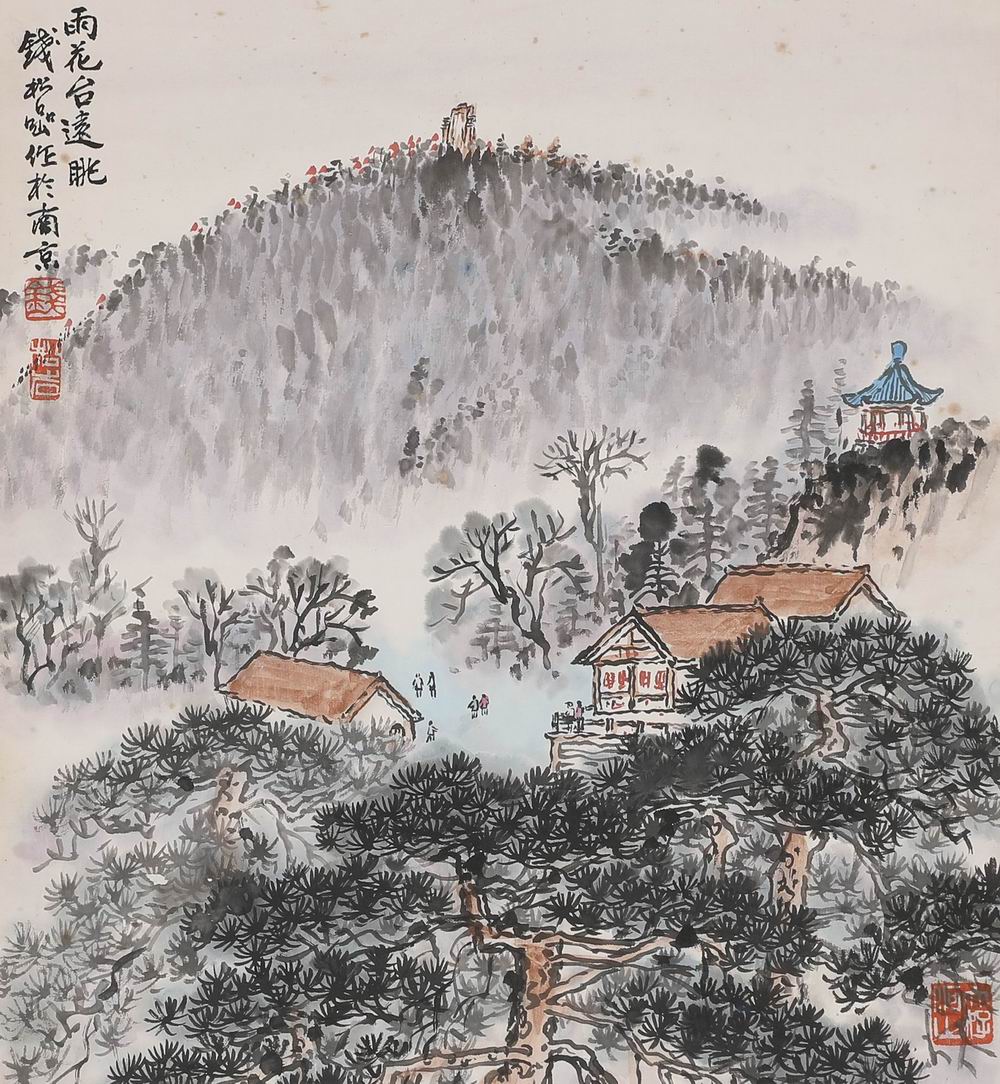 雨花台遠眺
錢松喦作於南京